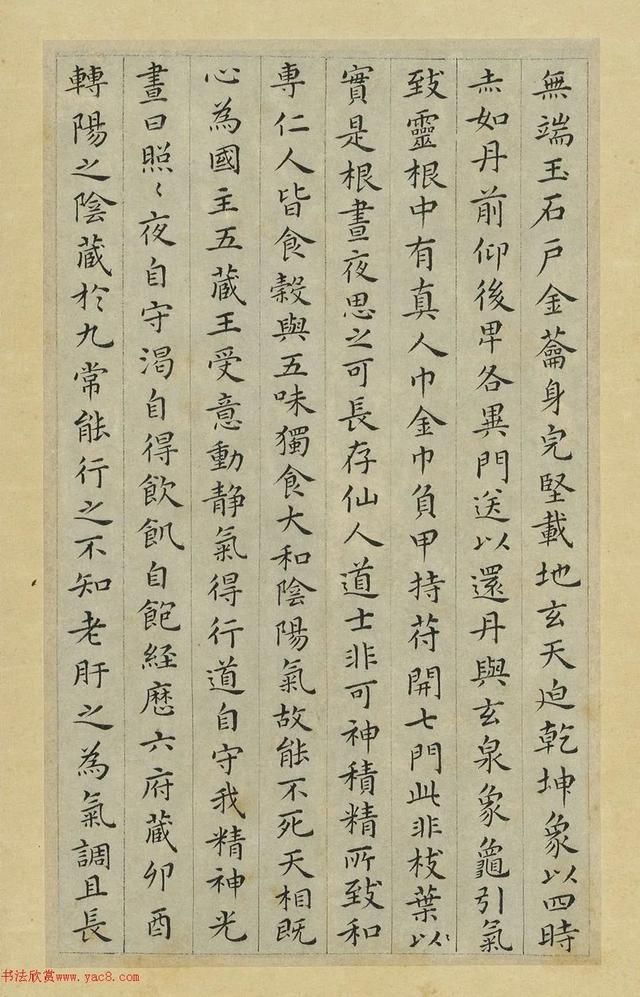 無端玉石戶金蘥身完堅載地玄天迫乾坤象以四時
赤如丹前仰後卑各異門送以還丹與玄泉象龜引氣
致靈根中有真人巾金巾負甲持苻開七門此非枝葉以
實是根晝夜思之可長存仙人道士非可神積精所致和
専仁人皆食穀與五味獨食大和陰陽氣故能不死天相既
心為國主五蔵王受意動静氣得行道自守我精神光
晝日照〻夜自守渴自得飲飢自飽経歷六府蔵卯酉
轉陽之陰蔵於九常能行之不知老肝之為氣調且長
书法欣赏www.yac8.com